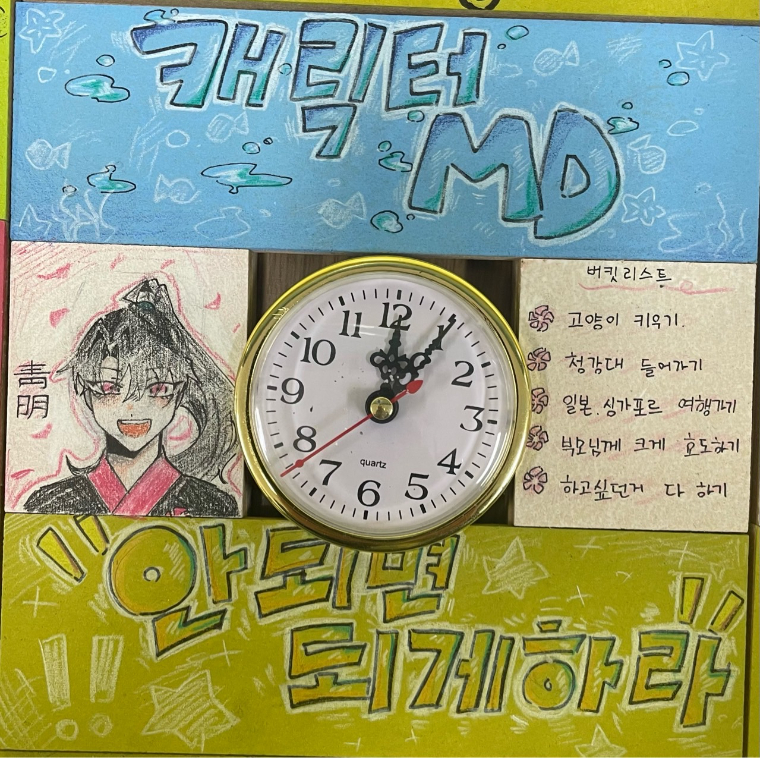 캐릭터
MD
靑
明
12
1
2
3
4
5
6
7
8
9
10
11
quartz
버킷리스트
고양이 키우기.
청강대 들어가기
일본.싱가포르 여행가기
부모님께 크게 효도하기
하고싶던거 다 하기
"안되면
되게하라"